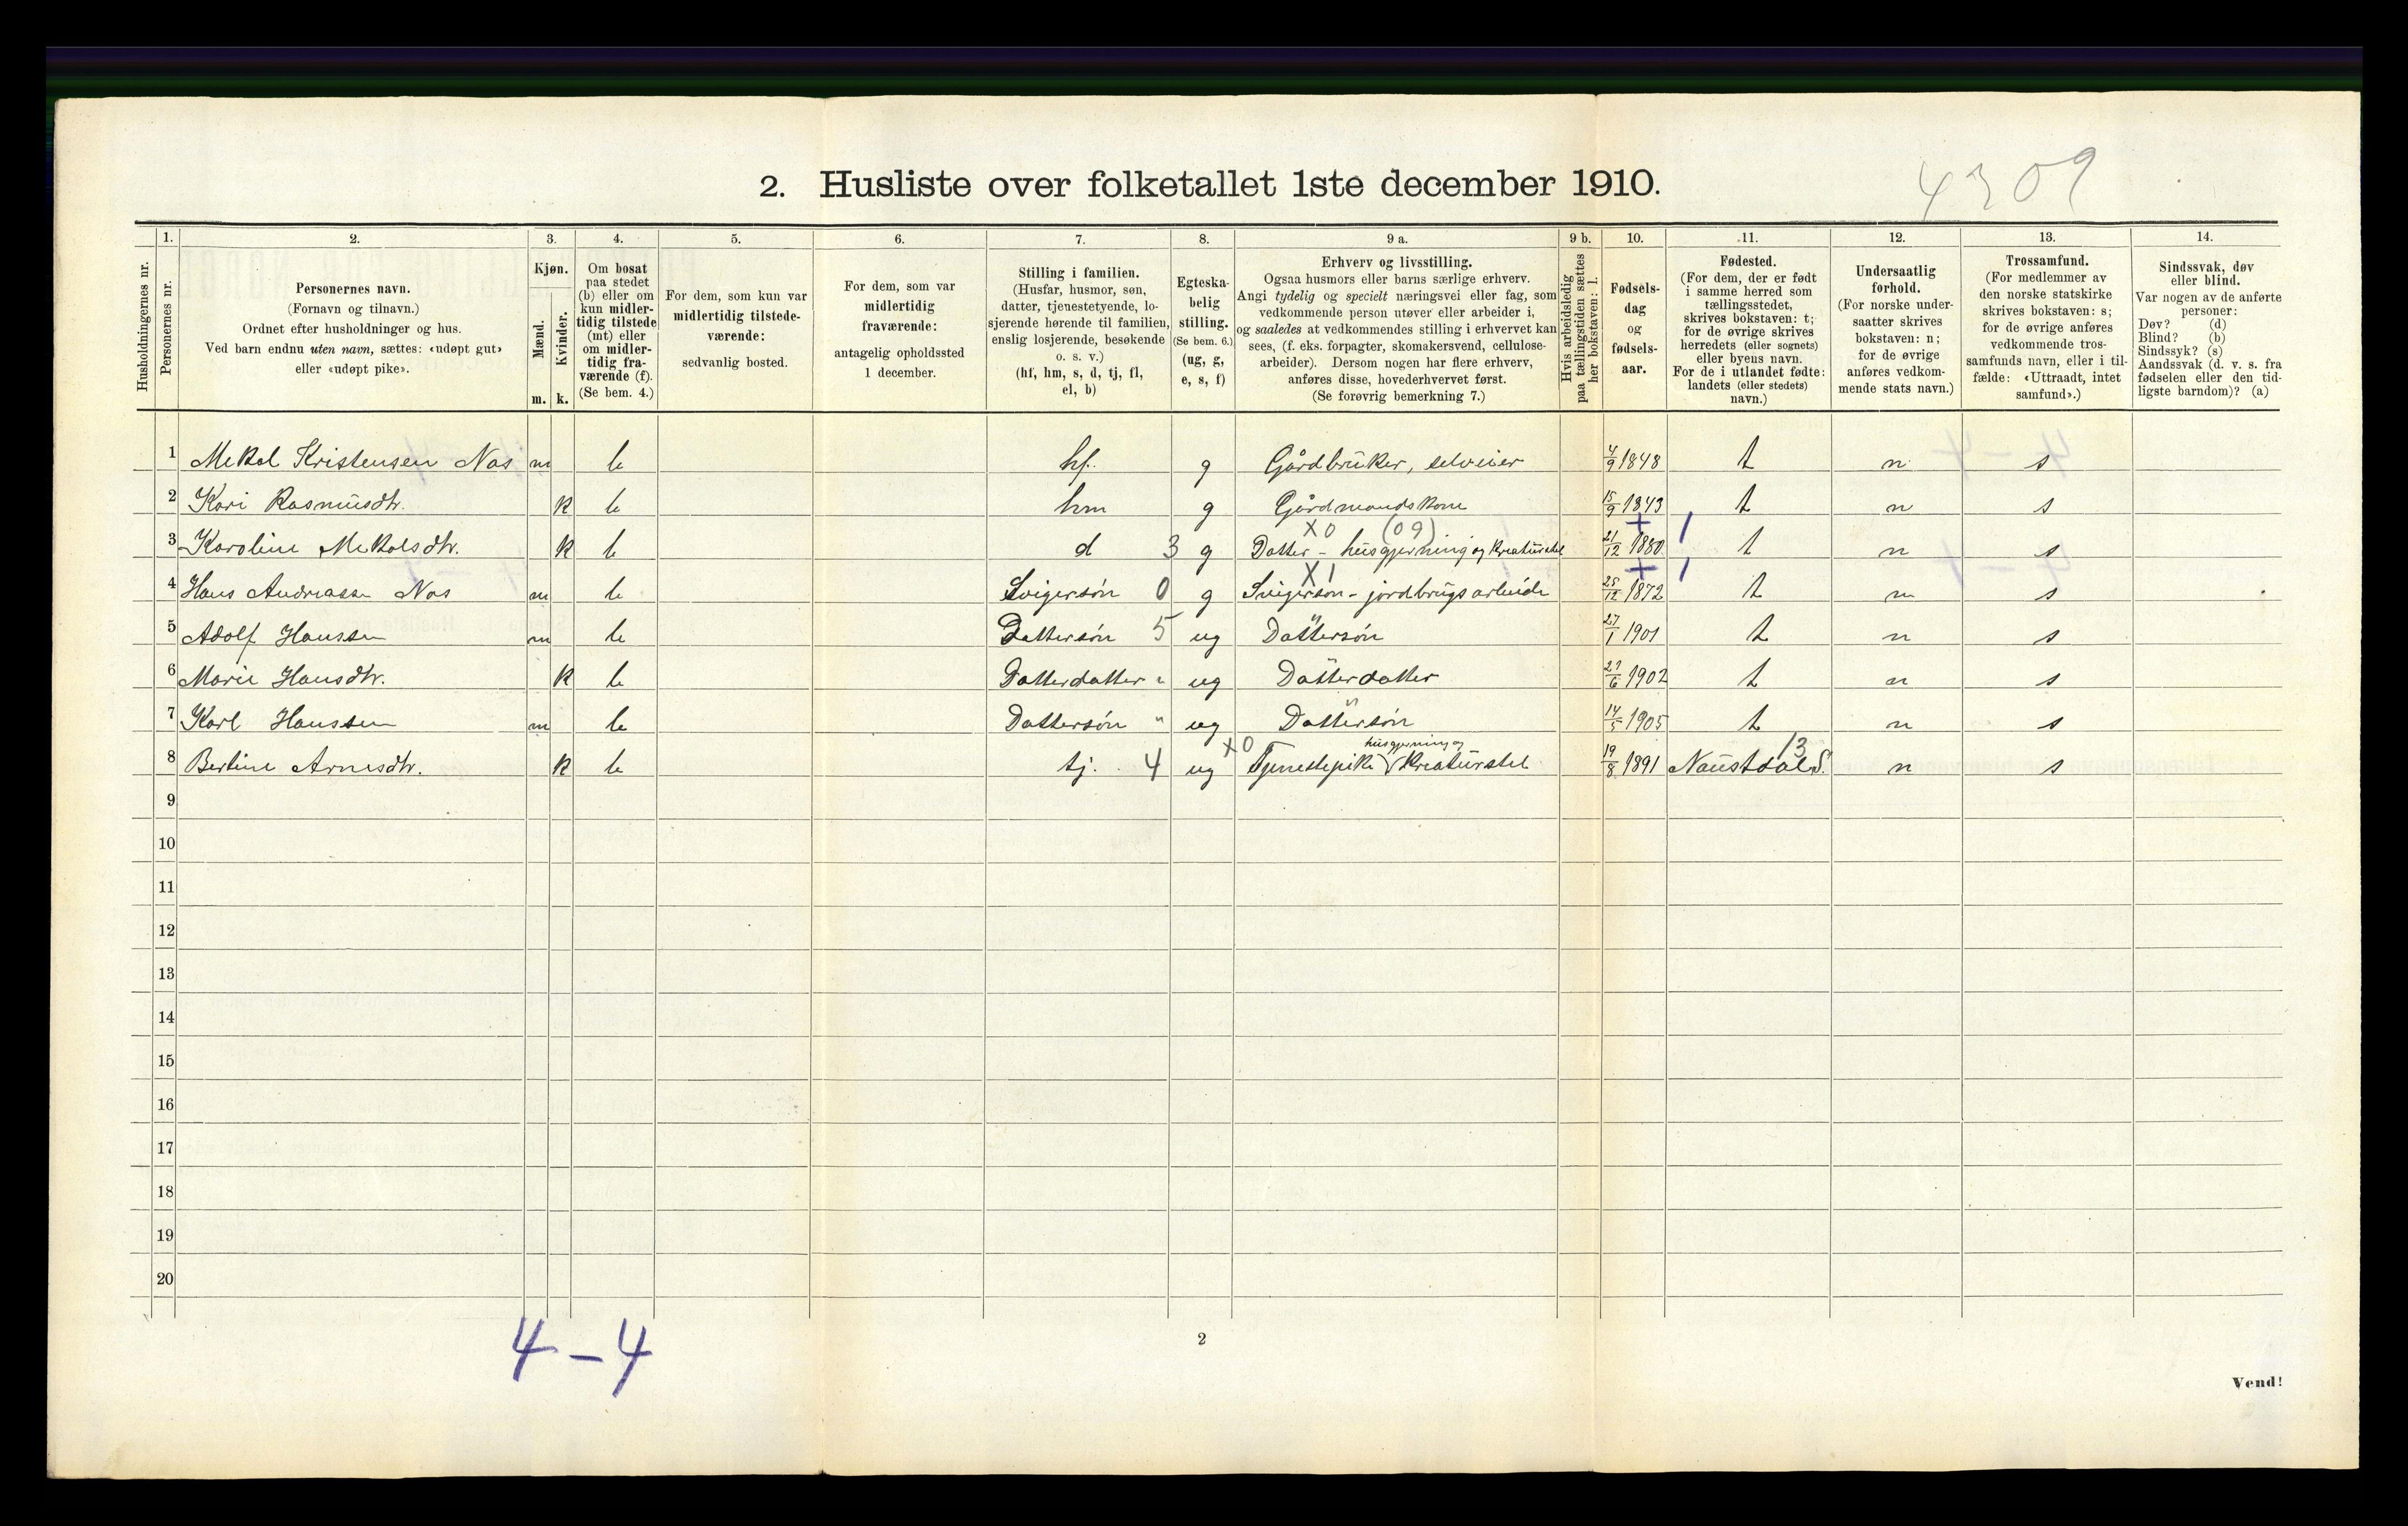 2. Husliste over folketallet 1ste december 1910.
4309
Husholdningernes nr.
1.
Personernes nr.
2.
Personernes navn.
(Fornavn og tilnavn.)
Ordnet efter husholdninger og hus.
Ved barn endnu uten navn, sættes: «udøpt gut»
eller «udøpt pike».
3.
Kjøn.
Mænd.
Kvinder.
m. k.
4.
Om bosat
paa stedet
(b) eller om
kun midler-
tidig tilstede
(mt) eller
om midler-
tidig fra-
værende (f).
(Se bem. 4.)
5.
For dem, som kun var
midlertidig tilstede-
værende:
sedvanlig bosted.
6.
For dem, som var
midlertidig
fraværende:
antagelig opholdssted
1 december.
7.
Stilling i familien.
(Husfar, husmor, søn,
datter, tjenestetyende, lo-
sjerende hørende til familien,
enslig losjerende, besøkende
o. s. v.)
(hf, hm, s, d, tj, fl,
el, b)
8.
Egteska-
belig
stilling.
(Se bem. 6.)
(ug, g,
e, s, f)
9 a.
Erhverv og livsstilling.
Ogsaa husmors eller barns særlige erhverv.
Angi tydelig og specielt næringsvei eller fag, som
vedkommende person utøver eller arbeider i,
og saaledes at vedkommendes stilling i erhvervet kan
sees, (f. eks. forpagter, skomakersvend, cellulose-
arbeider). Dersom nogen har flere erhverv,
anføres disse, hovederhvervet først.
(Se forøvrig bemerkning 7.)
9 b.
Hvis arbeidsledig
paa tællingstiden sættes
her bokstaven: l.
10.
Fødsels-
dag
og
fødsels-
aar.
11.
Fødested.
(For dem, der er født
i samme herred som
tællingsstedet,
skrives bokstaven: t;
for de øvrige skrives
herredets (eller sognets)
eller byens navn.
For de i utlandet fødte:
landets (eller stedets)
navn.)
12.
Undersaatlig
forhold.
(For norske under-
saatter skrives
bokstaven: n;
for de øvrige
anføres vedkom-
mende stats navn.)
13.
Trossamfund.
(For medlemmer av
den norske statskirke
skrives bokstaven: s;
for de øvrige anføres
vedkommende tros-
samfunds navn, eller i til-
fælde: «Uttraadt, intet
samfund».)
14.
Sindssvak, døv
eller blind.
Var nogen av de anførte
personer:
Døv? (d)
Blind? (b)
Sindssyk? (s)
Aandssvak (d. v. s. fra
fødselen eller den tid-
ligste barndom)? (a)
1 Mekal Kristensen Nos m b hf. g Gårdbruker, selveier 4/9 1848 t n s
2 Kari Rasmusdtr. k b hm g Gårdmandskone 15/9 1843 t n s
X0 (09) + 1
3 Karoline Mekalsdtr. k b d 3 g Datter - husgjerning og kreaturstel 21/12 1880 t n s
X1 + 1
4 Hans Andreassen Nos m b Svigersøn 0 g Svigersøn - jordbrugsarbeide 25/12 1872 t n s
5 Adolf Hanssen m b Dattersøn 5 ug Dattersøn 27/1 1901 t n s
6 Marie Hansdtr. k b Datterdatter " ug Datterdatter 27/6 1902 t n s
7 Karl Hanssen m b Dattersøn " ug Dattersøn 14/5 1905 t n s
X0 husgjerning og 13
8 Bertine Arnesdtr. k b tj. 4 ug Tjenestepike kreaturstel 19/8 1891 Naustdal S. n s
9
10
11
12
13
14
15
16
17
18
19
20
4 - 4
2
Vend!